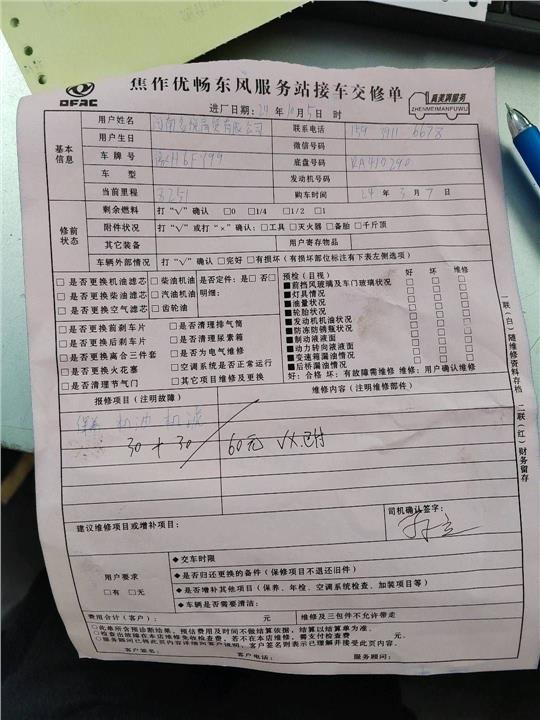 DFAC
焦作优畅东风服务站接车交修单
真美满服务
ZHENMEIMANFUWU
进厂日期: 24 年 10 月 5 日 时
基本信息
用户姓名
联系电话 159 3911 6678
用户生日
微信号码
车牌号 豫H6F499
底盘号码 RA410290
车型
发动机号码
当前里程 3251
购车时间 24 年 3 月 7 日
修前状态
剩余燃料 打“√”确认 □0 □1/4 □1/2 □1
附件状况 打“√”或打“×”确认: □工具 □灭火器 □备胎 □千斤顶
其它装备 用户寄存物品
车辆外部情况 打“√”确认 □完好 □有损坏(有损坏部位标注有下表左侧选项)
□是否更换机油滤芯 □柴油机油 是否定件: 是□ 否□
□是否更换柴油滤芯 □汽油机油 明细:
□是否更换空气滤芯 □齿轮油
□是否更换前刹车片 □是否清理排气筒
□是否更换后刹车片 □是否清理尿素箱
□是否更换离合三件套 □是否为电气维修
□是否更换火花塞 □空调系统是否正常运行
□是否清理节气门 □其它项目维修及更换
预检(目视) 好 坏 维修
■前挡风玻璃及车门玻璃状况 □ □ □
■灯具情况 □ □ □
■油量状况 □ □ □
■轮胎状况 □ □ □
■发动机机油状况 □ □ □
■防冻防锈瓶状况 □ □ □
■制动液液面 □ □ □
■动力转向液液面 □ □ □
■变速箱漏油情况 □ □ □
■后桥漏油情况 □ □ □
好: 合格 坏: 有故障需维修 维修: 用户确认维修
报修项目(注明故障)
维修内容(注明维修部件)
保养 机油 机滤
30 + 30 60元 VX已付
建议维修项目或增补项目:
司机确认签字:
用户要求
□有 □无
◆交车时限
◆是否归还更换的备件(保修项目不退还旧件)
◆是否增补其他项目(保养、年检、空调系统检查、加装项目等)
◆车辆是否需要清洁:
费用合计(客户): 元 维修及三包件不允许带走
○此单所含预诊断结果,预估费用及时间不做结算依据,结算以结算单为准。
○检查出故障在本店维修免收检查费,若不在本店维修,需支付检查费 元。
○服务顾问已将此页内容详细向客户说明,客户签名则表示已理解并接受此页内容。
客户签名: 客户电话: 服务顾问:
一联(白)随维修资料存档
二联(红)财务留存